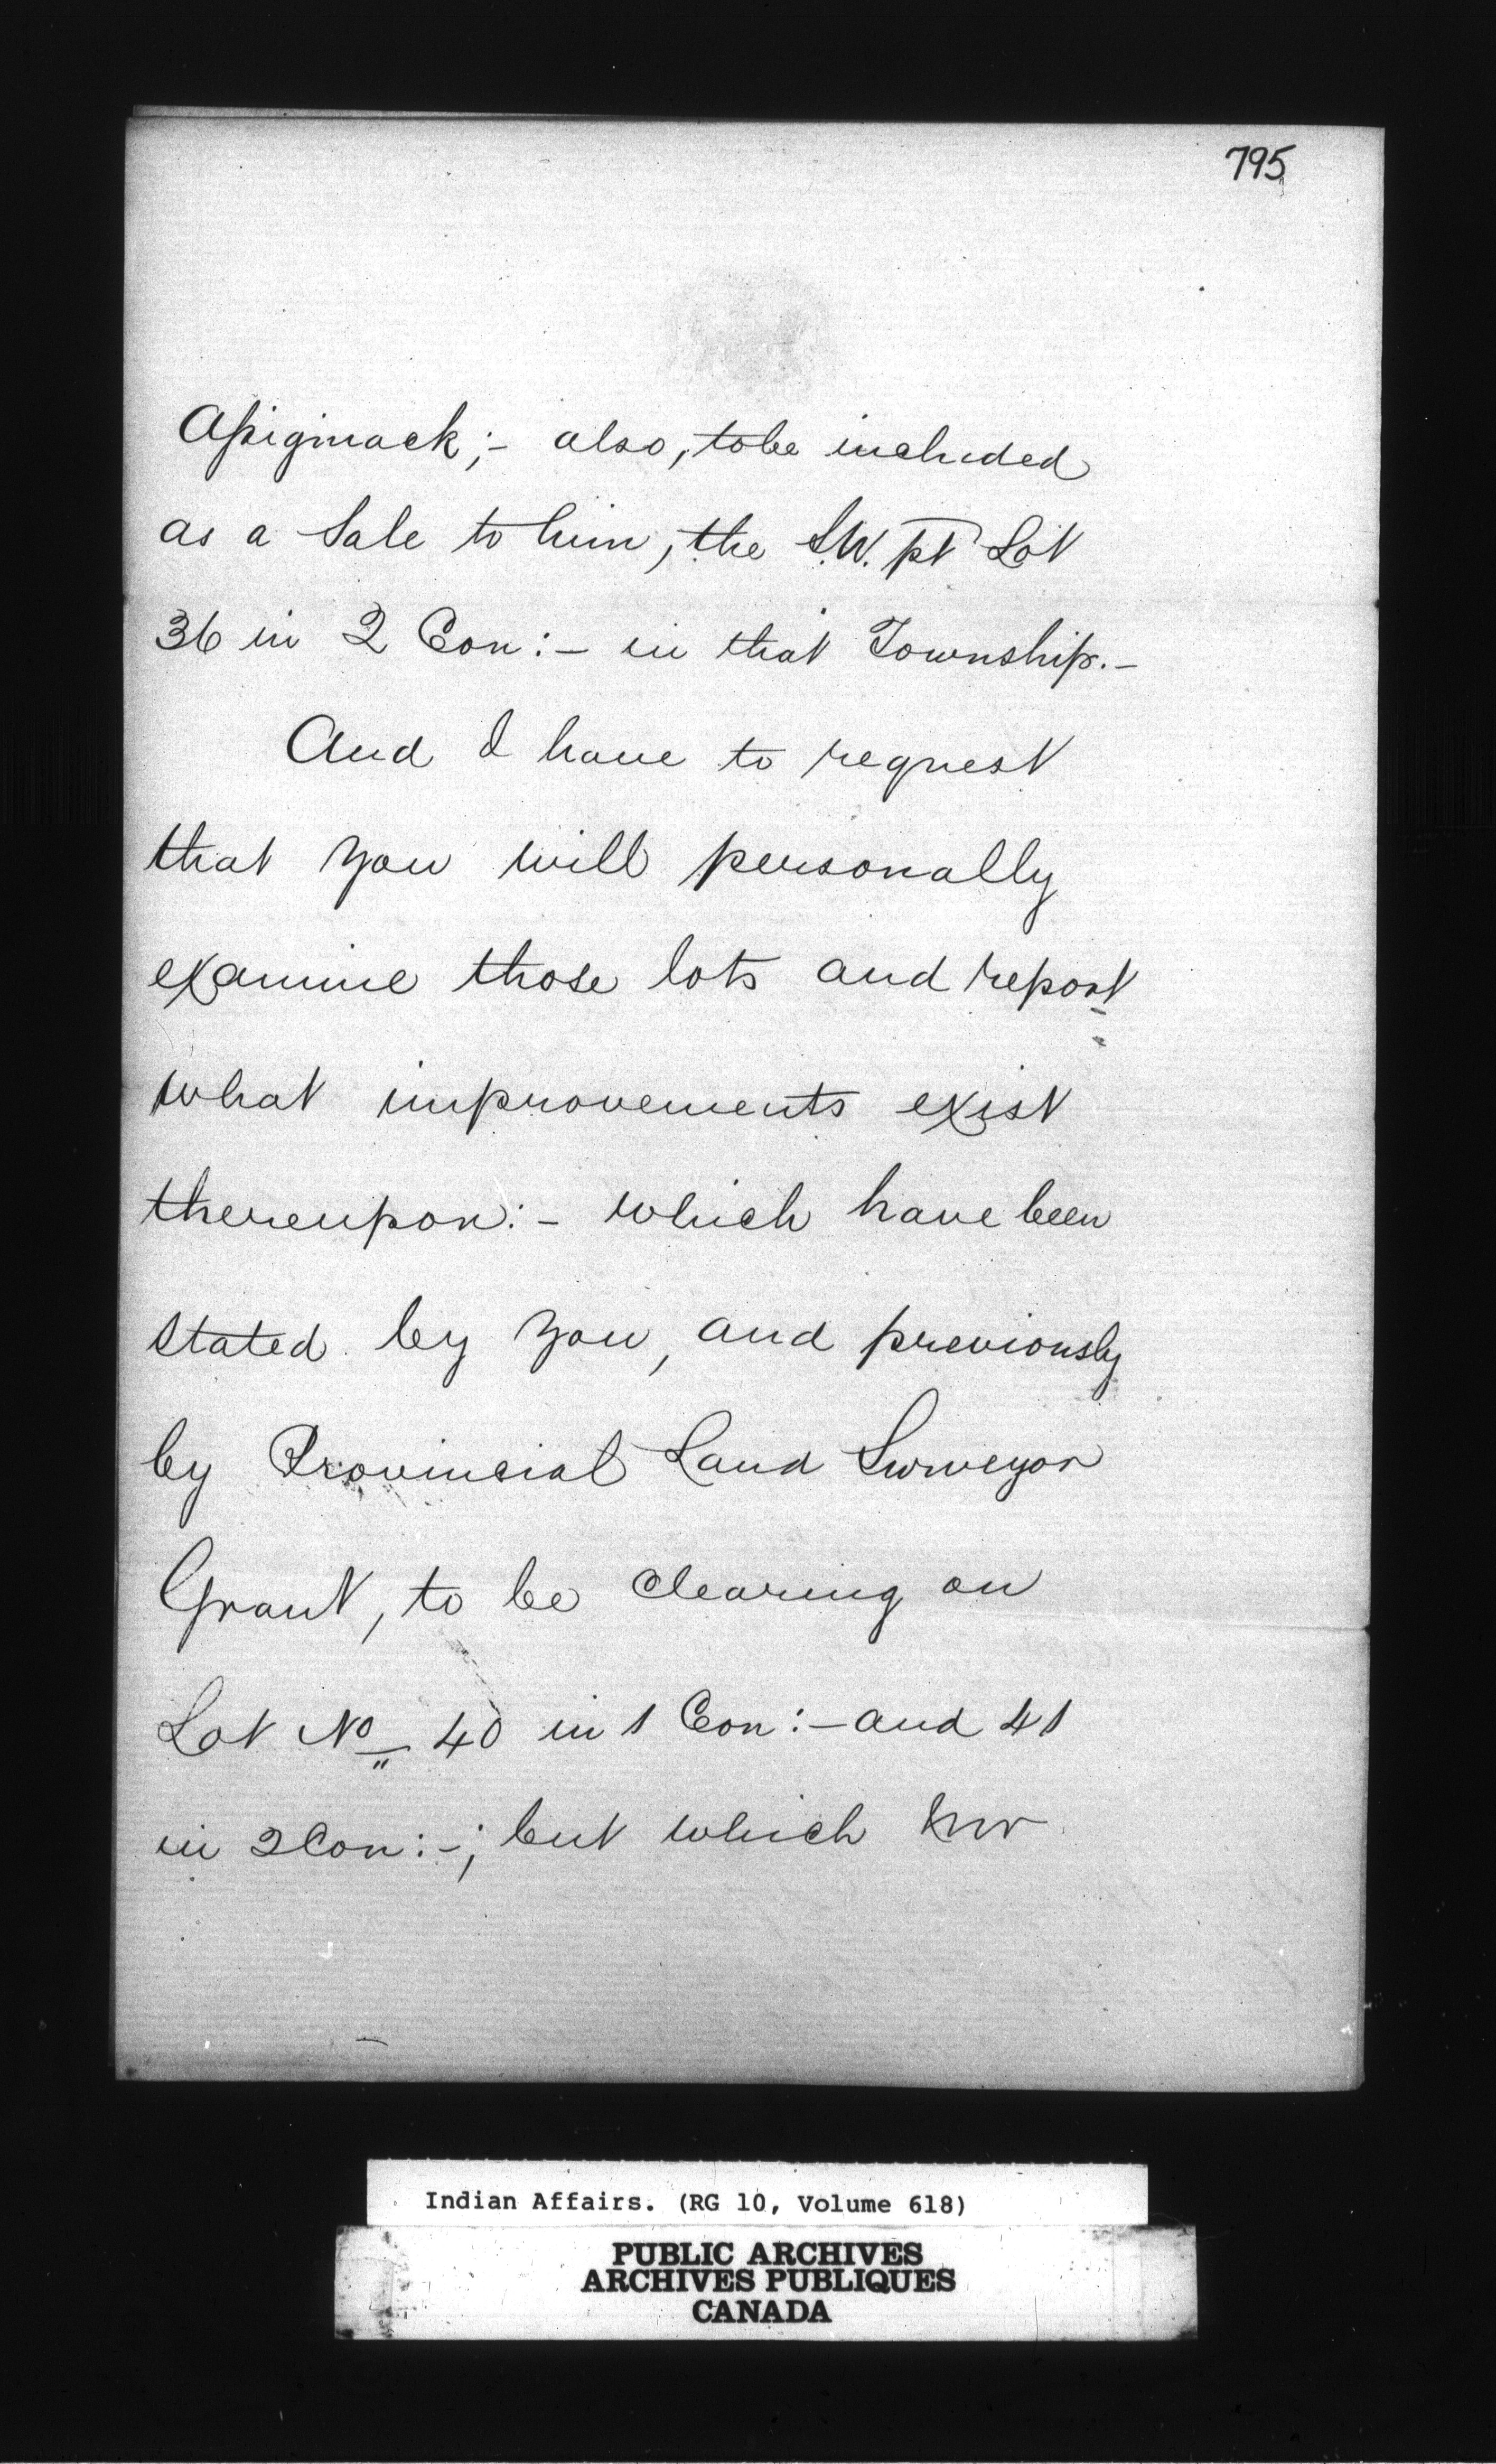 795
Assiginack;- also, to be included
as a Sale to him, the S.W. pt Lot
36 in 2 Con:- in that Township.-
And I have to request
that you will personally
examine those lots and report
what improvements exist
thereupon:- which have been
stated by you, and previously
by Provincial Land Surveyor
Grant, to be clearing on
Lot No 40 in 1 Con:- and 41
in 2 Con:-; but which Mr
Indian Affairs. (RG 10, Volume 618)
PUBLIC ARCHIVES
ARCHIVES PUBLIQUES
CANADA